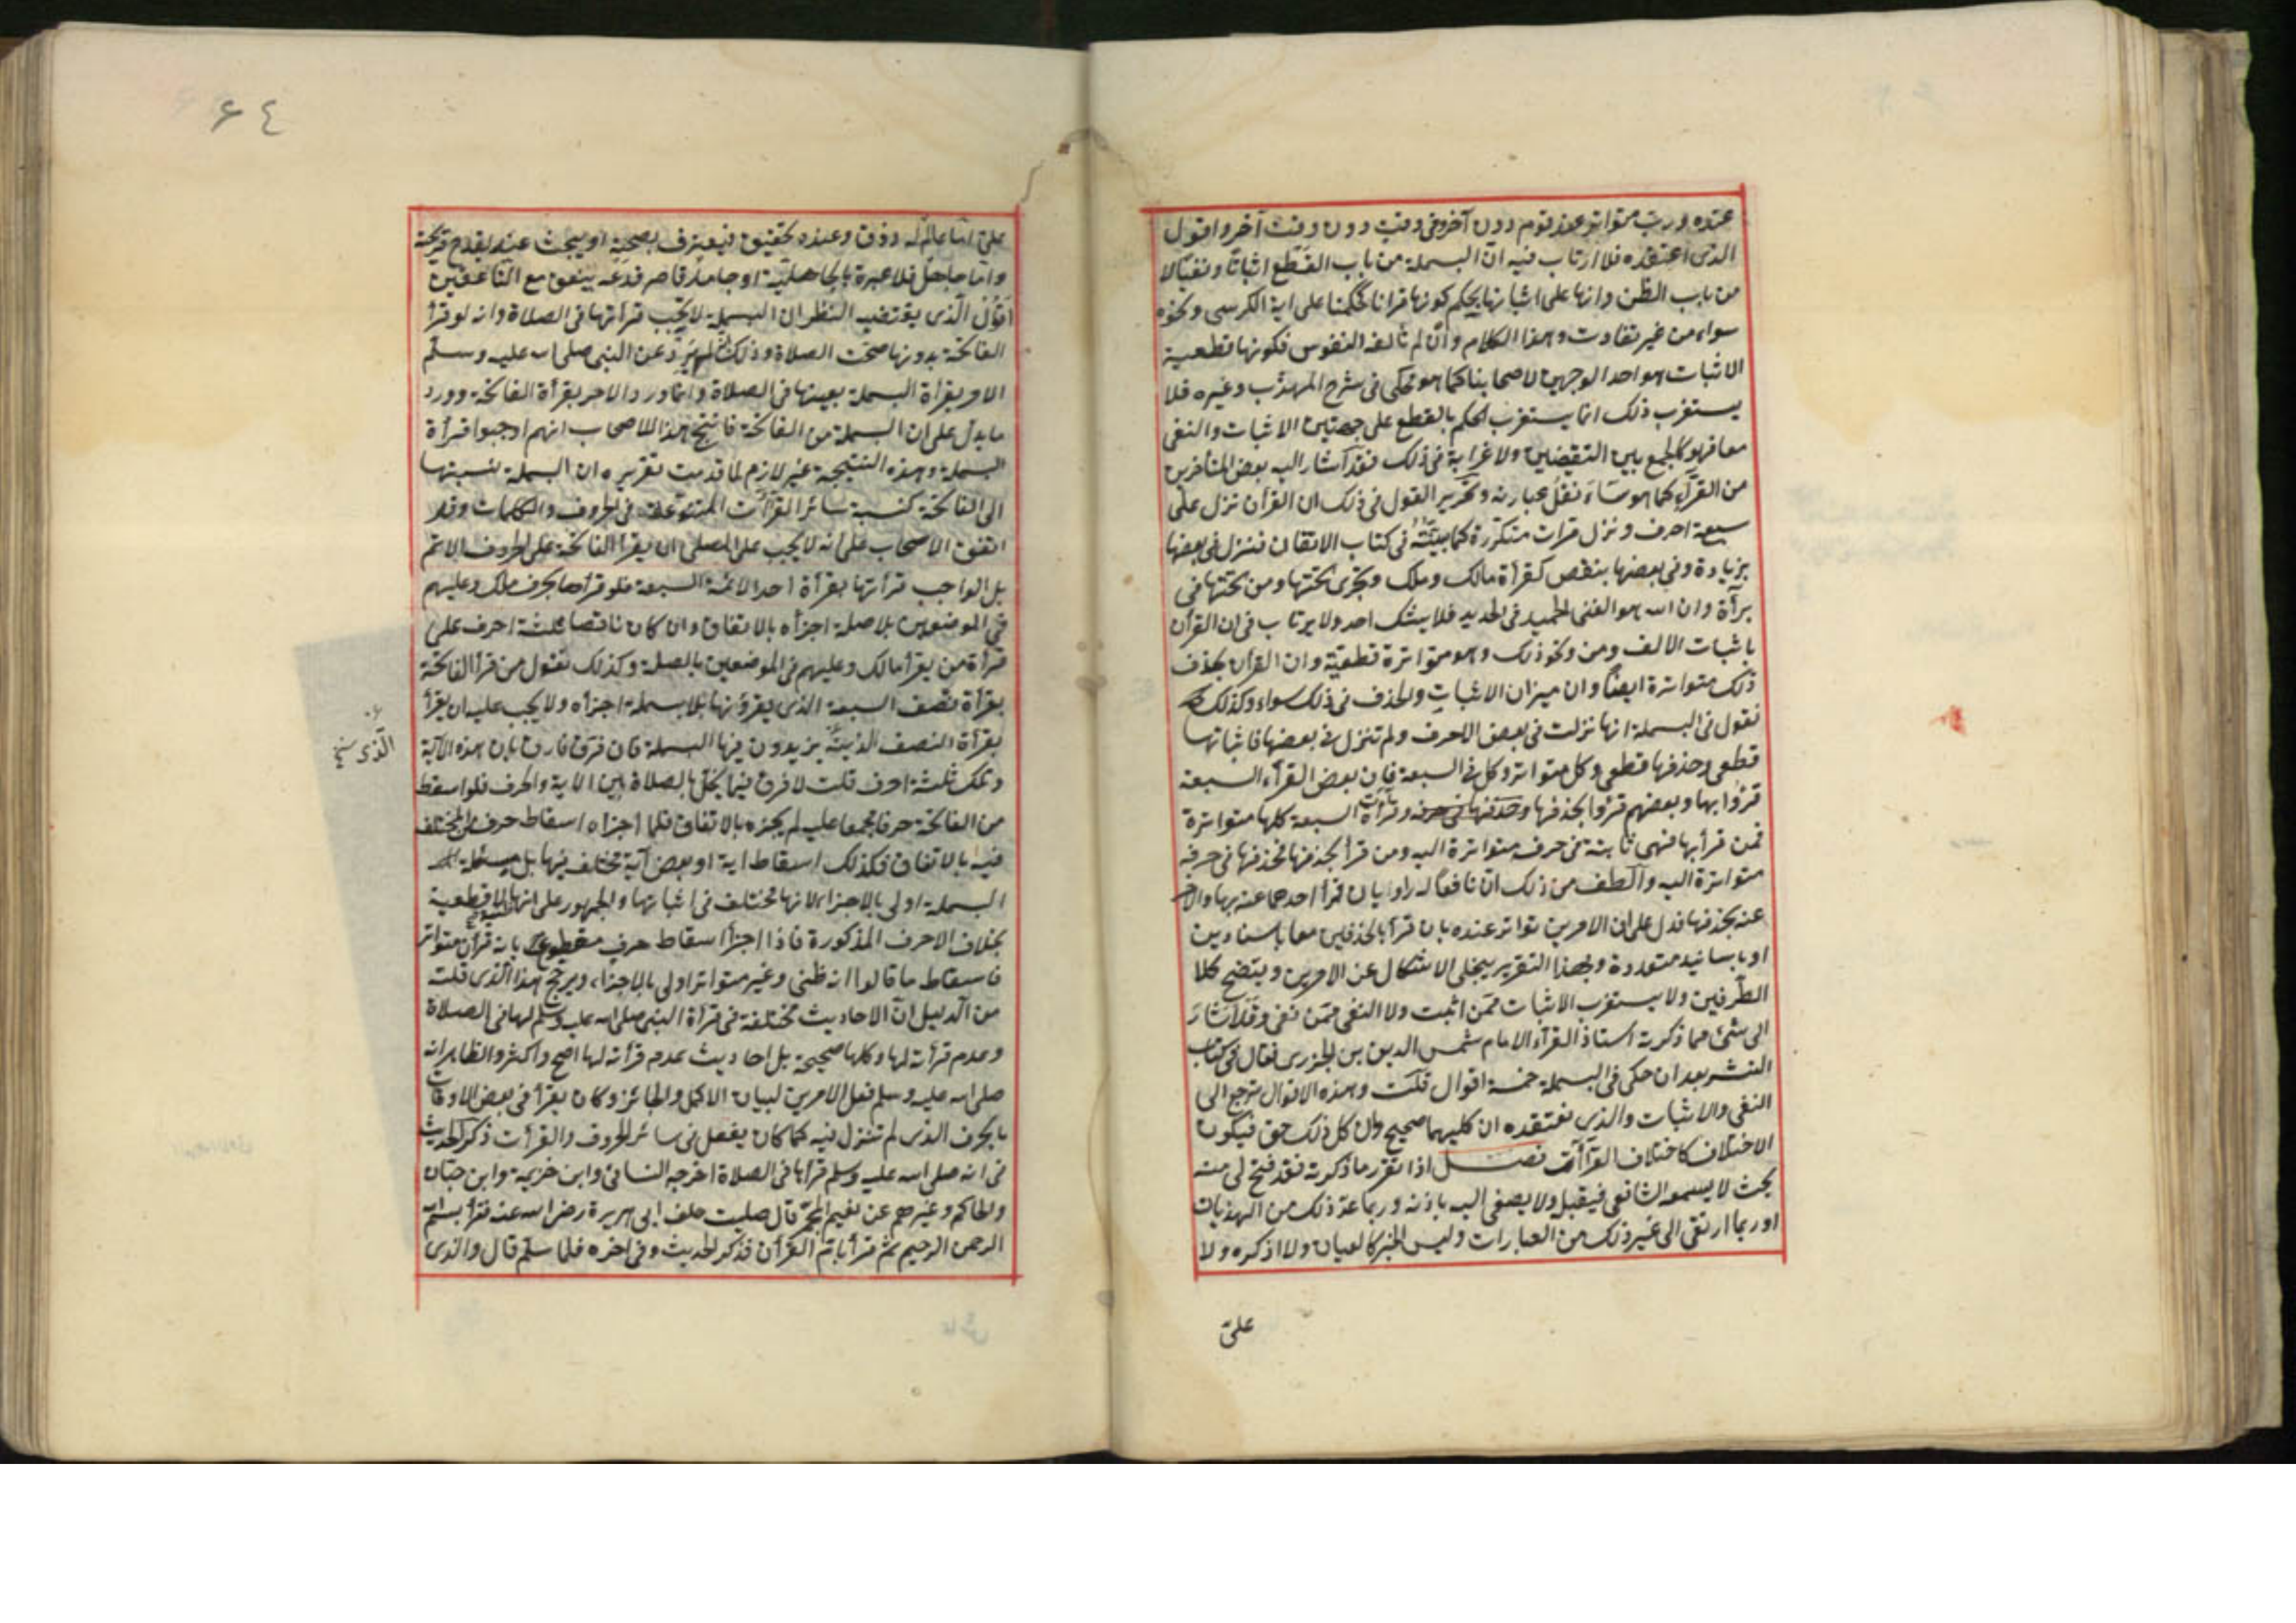 عنده ورب متواتر عند قوم دون آخر وفى وقت دون وقت آخر واقول
الذى اعتقده فلا ارتاب فيه ان البسملة من باب القطع اثباتا ونفيا لا
من باب الظن وانها على اثباتها يحكم كونها قرانا كحكمنا على اية الكرسى ونحوه
سواء من غير تفاوت وهذا الكلام وان لم تالفه النفوس فكونها قطعية
الاثبات هو احد الوجهين لاصحابنا كما هو محكى فى شرح المهذب وغيره فلا
يستغرب ذلك انما يستغرب الحكم بالقطع على جهتين الاثبات والنفى
معا فهو كالجمع بين النقيضين ولا غرابة فى ذلك فقد اشار اليه بعض المتأخرين
من القرآء كما هو سنقل عبارته وتحرير القول فى ذلك ان القران نزل على
سبعة احرف ونزل مرات متكررة كما بينته فى كتاب الاتقان فنزل فى بعضها
بزيادة وفى بعضها بنقص كقرأة مالك وملك وتجرى تحتها ومن تحتها فى
برآة وان الله هو الغنى الحميد فى الحديد فلا يشك احد ولا يرتاب فى ان القرآن
باثبات الالف ومن ونحو ذلك وهو متواترة قطعية وان القرآن بحذف
ذلك متواترة ايضا وان ميزان الاثبات والحذف فى ذلك سواء وكذلك
نقول فى البسملة انها نزلت فى بعض الاحرف ولم تنزل فى بعضها فاثباتها
قطعى وحذفها قطعى وكل متواتر وكل فى السبعة فان بعض القرآء السبعة
قرؤا بها وبعضهم قرؤا بحذفها وقرآت السبعة كلها متواترة
فمن قرأ بها فهى ثابتة فى حرفه متواترة اليه ومن قرأ بحذفها فحذفها فى حرفه
متواترة اليه والطف من ذلك ان نافعا له راويان قرأ احدهما عنه بها والاخر
عنه بحذفها فدل على ان الامرين تواتر عنده بان قرأ بالحذفين معا باسنادين
او باسانيد متعددة وبهذا التقرير ينجلى الاشكال عن الامرين ويتضح كلا
الطرفين ولا يستغرب الاثبات ممن اثبت ولا النفى ممن نفى وقد اشار
الى شئ مما ذكرته استاذ القرآء الامام شمس الدين بن الجزرى فقال فى كتاب
النشر بعد ان حكى فى البسملة خمسة اقوال قلت وهذه الاقوال ترجع الى
النفى والاثبات والذى نعتقده ان كليهما صحيح وان كل ذلك حق فيكون
الاختلاف كاختلاف القرآآت فصل اذا تقرر ما ذكرته فقد فتح لى منه
بحث لا يسمعه الشافعى فيقبل ولا يصغى اليه باذنه وربما عد ذلك من الهذيان
او ربما ارتقى الى غير ذلك من العبارات وليس الخبر كالعيان ولا اذكره ولا
على
٦٤
على اما عالم له ذوق وعنده تحقيق فيعترف بصحته او يبحث عنه بقدح قريحة
واما جاهل فلا عبرة بالجاهلية او جامد قاصر فدعه ينعق مع الناعقين
اقول الذى يقتضيه النظر ان البسملة لا يجب قرأتها فى الصلاة وانه لو قرأ
الفاتحة بدونها صحت الصلاة وذلك لم يرد عن النبى صلى الله عليه وسلم
الامر بقرأة البسملة بعينها فى الصلاة وانما ورد الامر بقرأة الفاتحة وورد
ما يدل على ان البسملة من الفاتحة فانتج هذا للاصحاب انهم اوجبوا قرأة
البسملة وهذه النتيجة غير لازم لما قدمت تقريره ان البسملة نسبتها
الى الفاتحة كنسبة سائر القرآآت المتنوعة فى الحروف والكلمات وقد
اتفق الاصحاب على انه لا يجب على المصلى ان يقرأ الفاتحة على الحروف الاتم
بل الواجب قرأتها بقرأة احد الائمة السبعة فلو قرأها بحرف ملك وعليهم
فى الموضعين بلا صلة اجزأه بالاتفاق وان كان ناقصا ثلثة احرف على
قرأة من يقرأ مالك وعليهم فى الموضعين بالصلة وكذلك نقول من قرأ الفاتحة
بقرأة نصف السبعة الذى يقرؤنها بلا بسملة اجزأه ولا يجب عليه ان يقرأ
الذى نسخ
بقرأة النصف الذين يزيدون فيها البسملة فان فرق فارق بان هذه الآية
وتلك ثلثة احرف قلت لا فرق فيما يخل بالصلاة بين الاية والحرف فلو اسقط
من الفاتحة حرفا مجمعا عليه لم يجزه بالاتفاق فلما اجزاه اسقاط حرف المختلف
فيه بالاتفاق فكذلك اسقاط اية او بعض آية مختلف فيها بل مسئلة
البسملة اولى بالاجزاء لانها مختلف فى اثباتها والجمهور على انها قطعية
بخلاف الاحرف المذكورة فاذا اجزأ اسقاط حرف مقطوع بانه قرآن متواتر
فاسقاط ما قالوا انه ظنى وغير متواتر اولى بالاجزاء ويرجح هذا الذى قلت
من الدليل ان الاحاديث مختلفة فى قرأة النبى صلى الله عليه وسلم لها فى الصلاة
وعدم قرأته لها وكلها صحيحة بل احاديث عدم قرأته لها اصح واكثر والظاهر انه
صلى الله عليه وسلم فعل الامرين لبيان الاكمل والجائز وكان يقرأ فى بعض الاوقات
بالحرف الذى لم تنزل فيه كما كان يفعل فى سائر الحروف والقرأت ذكر الحديث
فى انه صلى الله عليه وسلم قرأها فى الصلاة اخرجه النسائى وابن خزيمة وابن حبان
والحاكم وغيرهم عن نعيم المجمر قال صليت خلف ابى هريرة رضى الله عنه فقرأ بسم الله
الرحمن الرحيم ثم قرأ بام القرآن فذكر الحديث وفى اخره فلما سلم قال والذى